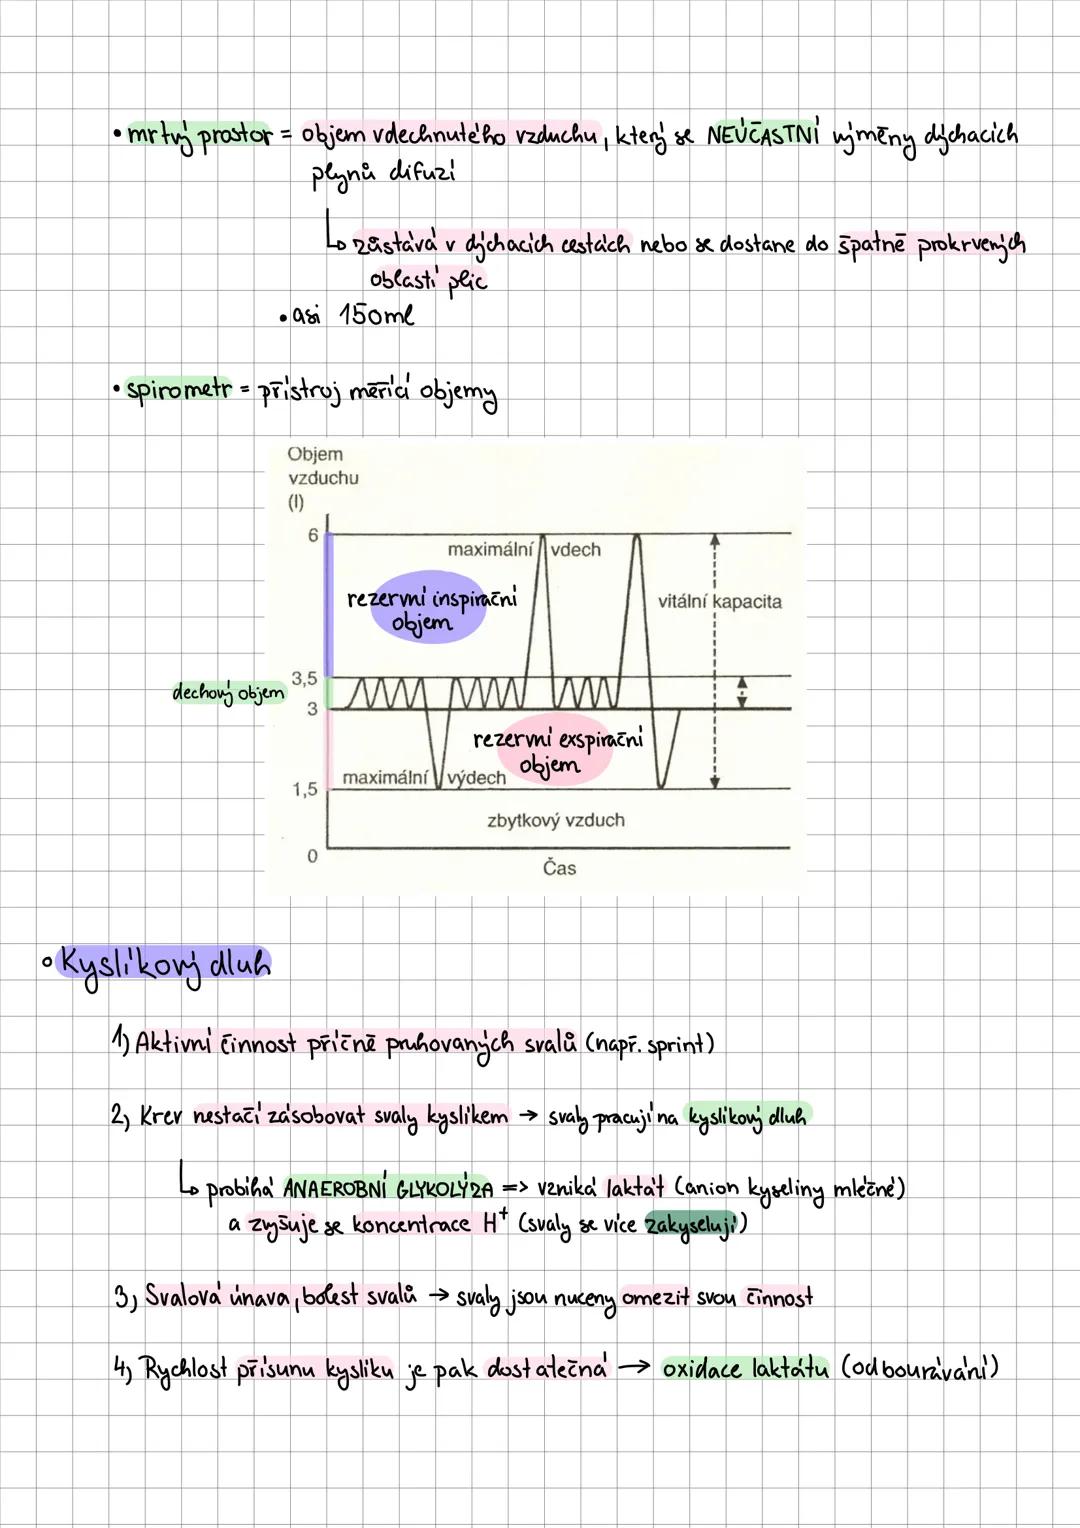 • mrtvý prostor = objem vdechnutého vzduchu, který se NEÚČASTNÍ výměny dýchacích
plynů difuzí
↳ zůstává v dýchacích cestách nebo se dostane do špatně prokrvených
oblastí plic
• asi 150ml
• spirometr = přístroj měřící objemy
Objem
vzduchu
(l)
6
maximální vdech
rezervní inspirační
objem
vitální kapacita
3,5
dechový objem
3
rezervní exspirační
objem
maximální výdech
1,5
zbytkový vzduch
0
Čas
° Kyslíkový dluh
1) Aktivní činnost příčně pruhovaných svalů (např. sprint)
2) Krev nestačí zásobovat svaly kyslíkem → svaly pracují na kyslíkový dluh
↳ probíhá ANAEROBNÍ GLYKOLÝZA => vzniká laktát (anion kyseliny mléčné)
a zvyšuje se koncentrace H⁺ (svaly se více zakyselují)
3) Svalová únava, bolest svalů → svaly jsou nuceny omezit svou činnost
4) Rychlost přísunu kyslíku je pak dostatečná → oxidace laktátu (odbourávání)